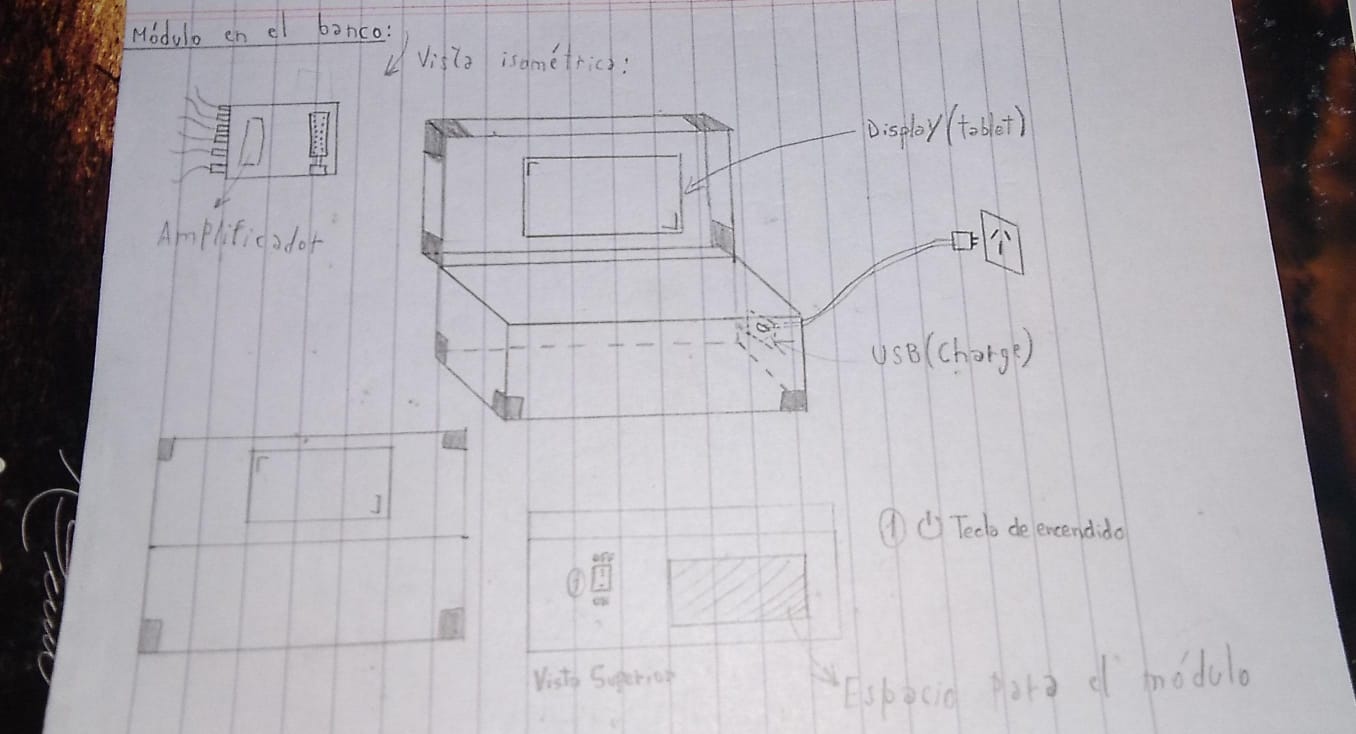 Módulo en el banco:
Vista isométrica:
Display (tablet)
Amplificador
USB (Charge)
① Tecla de encendido
OFF
①
ON
Vista Superior
Espacio para el módulo